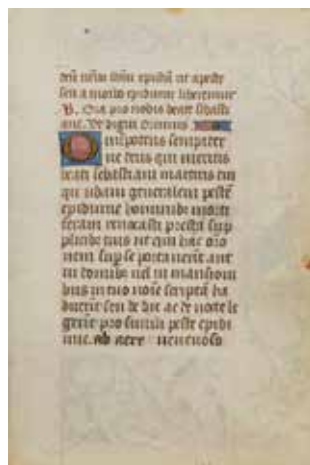 seu a morbo epidimie liberemur
℣. Ora pro nobis beate sebasti
ane. Ut digni Omnīs
Omnipotens sempiter
ne deus qui meritis
beati sebastiani martiris tui
quādam generalem pestē
epidimie hominibus morti
feram revocasti presta sup
plicibz tuis ut qui hāc oro
nem sup se portaverit aut
in domibz vel in mansioni
bus in tuo noīe scriptā ha
buerit seu de die ac de nocte le
gerit pro simili peste epidi
mie. ab aere venenoso